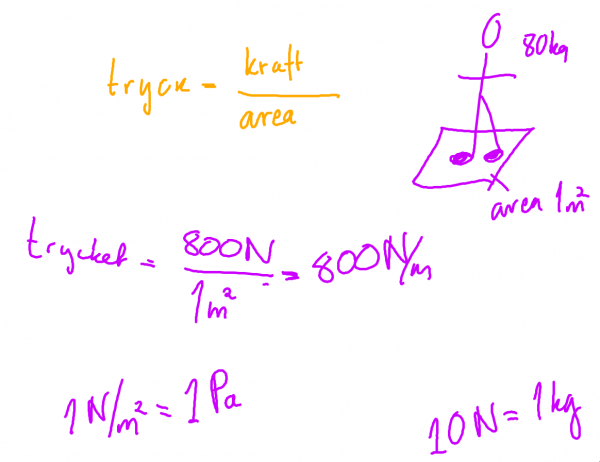 tryck = kraft / area
80kg
area 1m²
trycket = 800N / 1m² = 800N/m
1 N/m² = 1 Pa
10N = 1kg